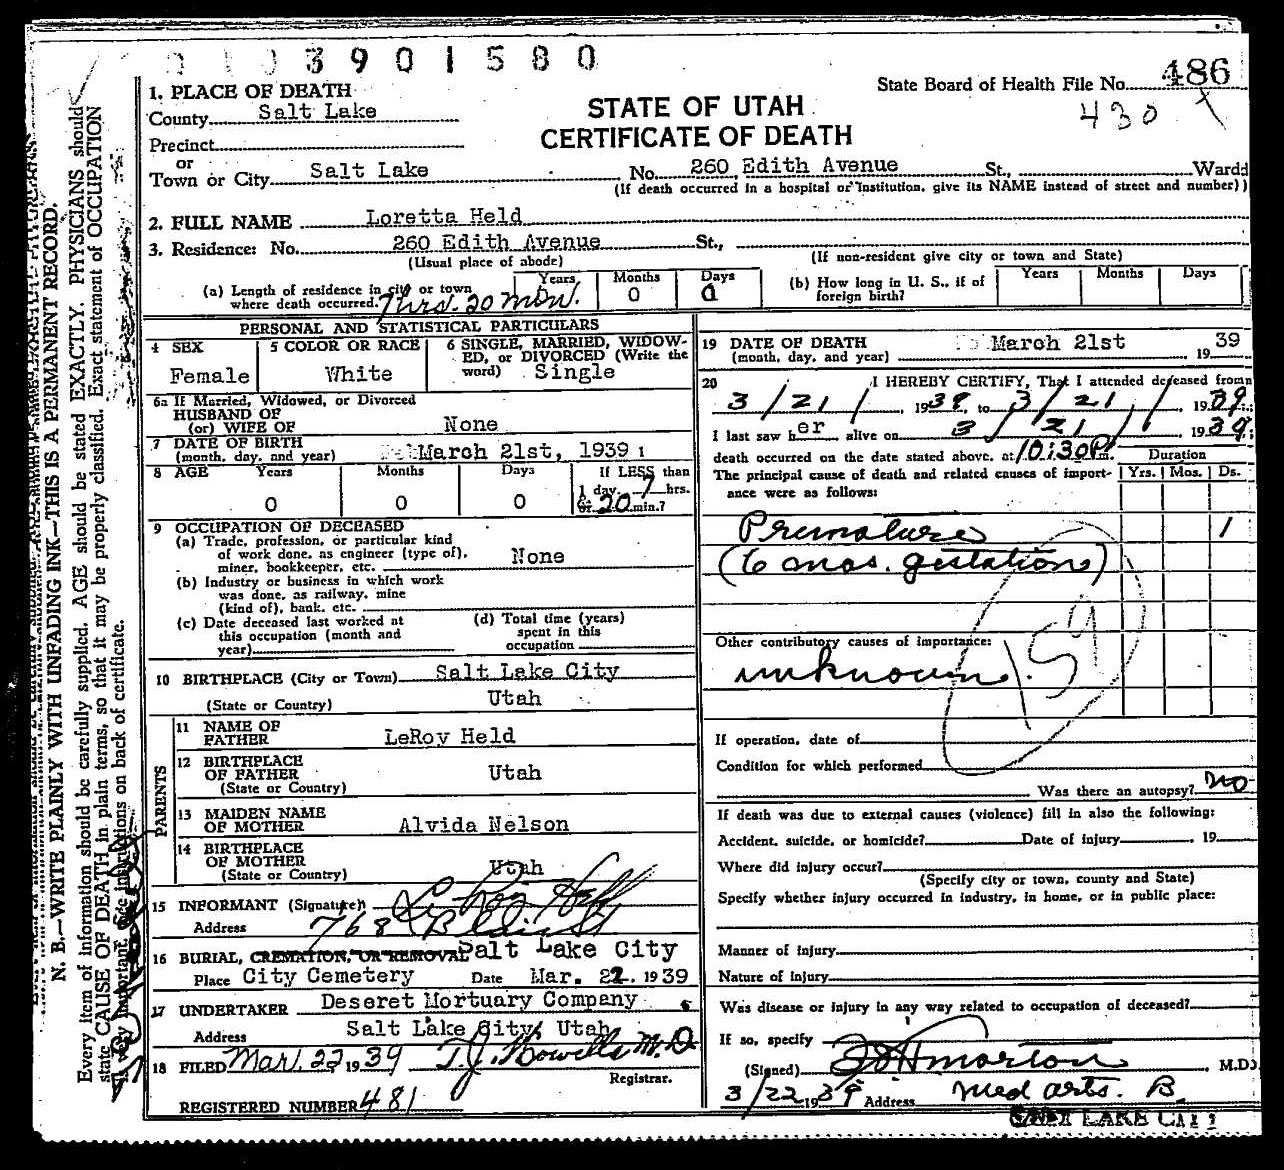 3901580
State Board of Health File No. 486
430
STATE OF UTAH
CERTIFICATE OF DEATH
1. PLACE OF DEATH
County Salt Lake
Precinct
or
Town or City Salt Lake No. 260 Edith Avenue St., Ward
(If death occurred in a hospital or institution, give its NAME instead of street and number)
2. FULL NAME Loretta Held
3. Residence: No. 260 Edith Avenue St.,
(Usual place of abode) (If non-resident give city or town and State)
(a) Length of residence in city or town where death occurred. 7 hrs. 20 min. Years Months 0 Days 0
(b) How long in U. S., if of foreign birth? Years Months Days
PERSONAL AND STATISTICAL PARTICULARS
4 SEX Female
5 COLOR OR RACE White
6 SINGLE, MARRIED, WIDOWED, or DIVORCED (Write the word) Single
6a If Married, Widowed, or Divorced
HUSBAND OF
(or) WIFE OF None
7 DATE OF BIRTH
(month, day, and year) March 21st, 1939
8 AGE Years 0 Months 0 Days 0 If LESS than 1 day 7 hrs. or 20 min.?
9 OCCUPATION OF DECEASED
(a) Trade, profession, or particular kind
of work done, as engineer (type of),
miner, bookkeeper, etc. None
(b) Industry or business in which work
was done, as railway, mine
(kind of), bank, etc.
(c) Date deceased last worked at
this occupation (month and
year)
(d) Total time (years)
spent in this
occupation
10 BIRTHPLACE (City or Town) Salt Lake City
(State or Country) Utah
PARENTS
11 NAME OF FATHER LeRoy Held
12 BIRTHPLACE OF FATHER
(State or Country) Utah
13 MAIDEN NAME OF MOTHER Alvida Nelson
14 BIRTHPLACE OF MOTHER
(State or Country) Utah
15 INFORMANT (Signature) Le Roy Held
Address 768 Blair St
16 BURIAL, CREMATION, OR REMOVAL Salt Lake City
Place City Cemetery Date Mar. 22. 1939
17 UNDERTAKER Deseret Mortuary Company
Address Salt Lake City, Utah
18 FILED Mar. 22 1939 T.J. Howells M.D.
Registrar.
REGISTERED NUMBER 481
19 DATE OF DEATH
(month, day, and year) March 21st 1939
20 I HEREBY CERTIFY, That I attended deceased from
3/21/, 1939, to 3/21/, 1939.
I last saw her alive on 3/21, 1939,
death occurred on the date stated above, at 10:30 P.m. Duration
The principal cause of death and related causes of importance were as follows: Yrs. Mos. Ds.
Premature 1
(6 mos. gestation)
159
Other contributory causes of importance:
unknown.
If operation, date of
Condition for which performed
Was there an autopsy? no
If death was due to external causes (violence) fill in also the following:
Accident, suicide, or homicide? Date of injury , 19
Where did injury occur?
(Specify city or town, county and State)
Specify whether injury occurred in industry, in home, or in public place:
Manner of injury
Nature of injury
Was disease or injury in any way related to occupation of deceased?
If so, specify
(Signed) Morton M.D.
3/22 1939 Address Med arts. B.
SALT LAKE CITY
N. B.—WRITE PLAINLY WITH UNFADING INK—THIS IS A PERMANENT RECORD.
Every item of information should be carefully supplied. AGE should be stated EXACTLY. PHYSICIANS should
state CAUSE OF DEATH in plain terms, so that it may be properly classified. Exact statement of OCCUPATION
is very important. See instructions on back of certificate.